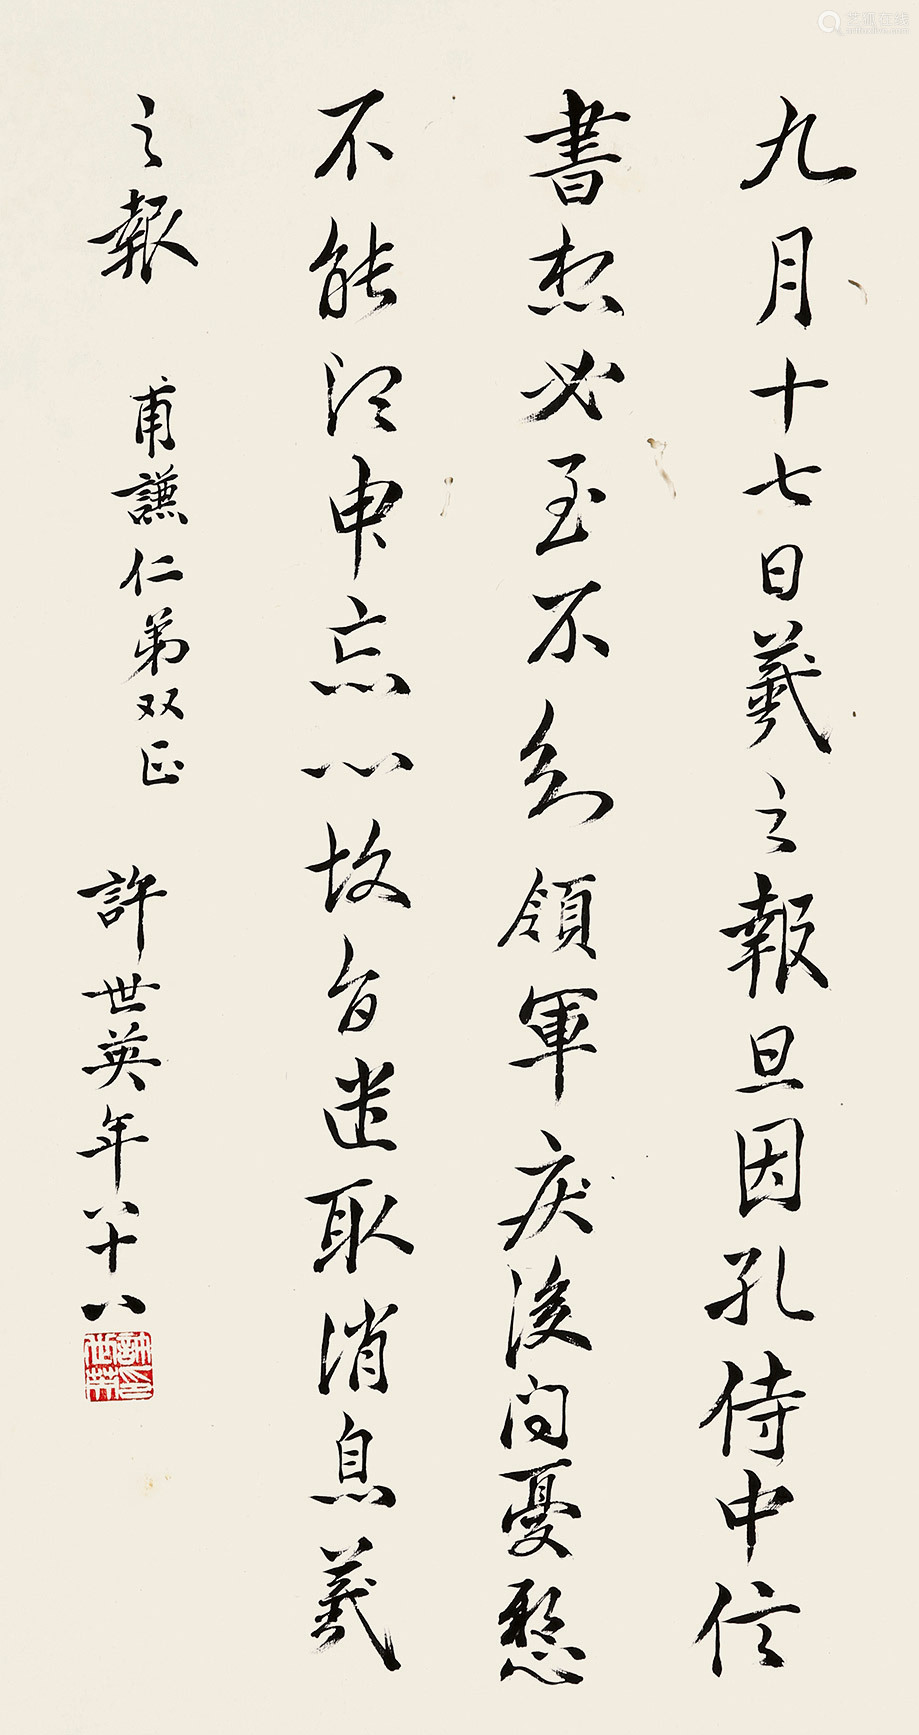 九月十七日羲之報旦因孔侍中信
書想必至不知領軍疾後問憂愁
不能須申忘心故旨遣取消息羲
之報
甫謙仁弟双正
許世英年八十八
許世英印
艺狐在线